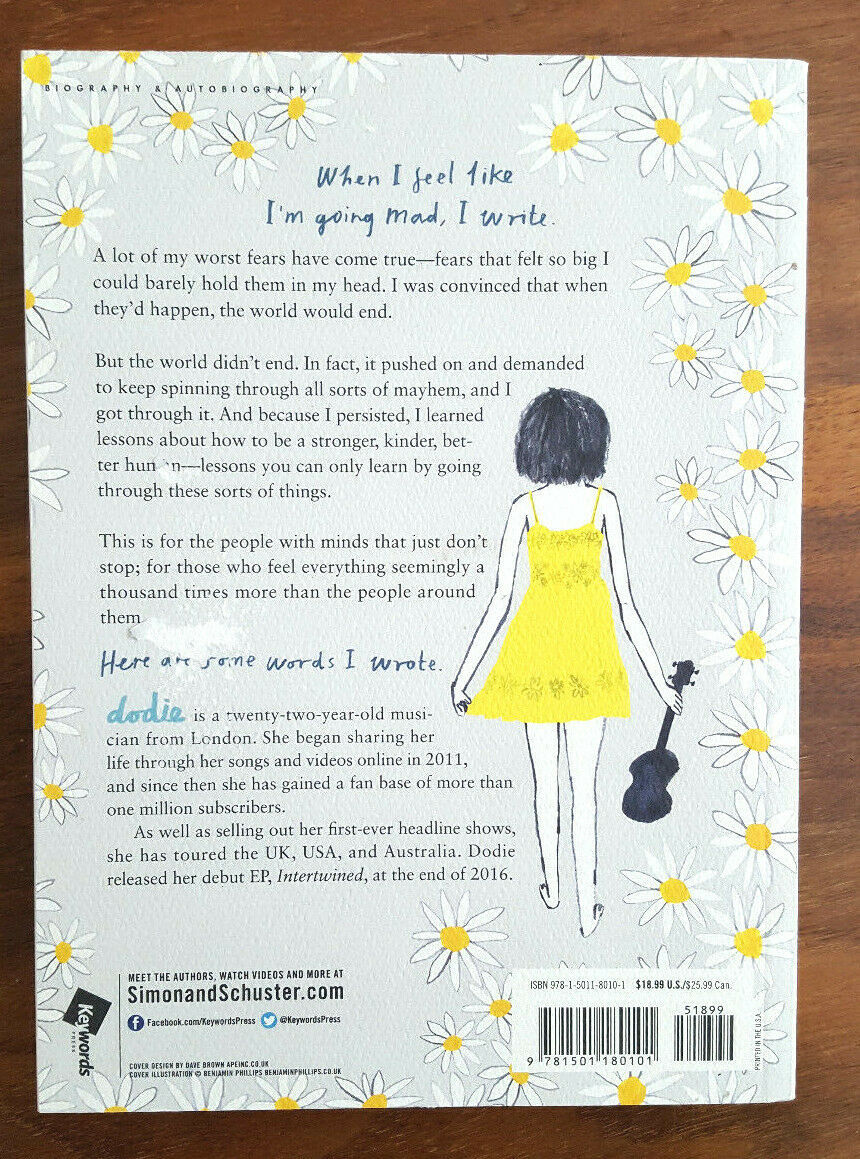 BIOGRAPHY & AUTOBIOGRAPHY
When I feel like
I'm going mad, I write.
A lot of my worst fears have come true—fears that felt so big I
could barely hold them in my head. I was convinced that when
they'd happen, the world would end.
But the world didn't end. In fact, it pushed on and demanded
to keep spinning through all sorts of mayhem, and I
got through it. And because I persisted, I learned
lessons about how to be a stronger, kinder, bet-
ter human—lessons you can only learn by going
through these sorts of things.
This is for the people with minds that just don't
stop; for those who feel everything seemingly a
thousand times more than the people around
them
Here are some words I wrote.
dodie is a twenty-two-year-old musi-
cian from London. She began sharing her
life through her songs and videos online in 2011,
and since then she has gained a fan base of more than
one million subscribers.
As well as selling out her first-ever headline shows,
she has toured the UK, USA, and Australia. Dodie
released her debut EP, Intertwined, at the end of 2016.
MEET THE AUTHORS, WATCH VIDEOS AND MORE AT
SimonandSchuster.com
Facebook.com/KeywordsPress @KeywordsPress
Keywords
PRESS
COVER DESIGN BY DAVE BROWN APEINC.CO.UK
COVER ILLUSTRATION © BENJAMIN PHILLIPS BENJAMINPHILLIPS.CO.UK
ISBN 978-1-5011-8010-1 $18.99 U.S./$25.99 Can.
51899
9 781501 180101
PRINTED IN THE U.S.A.